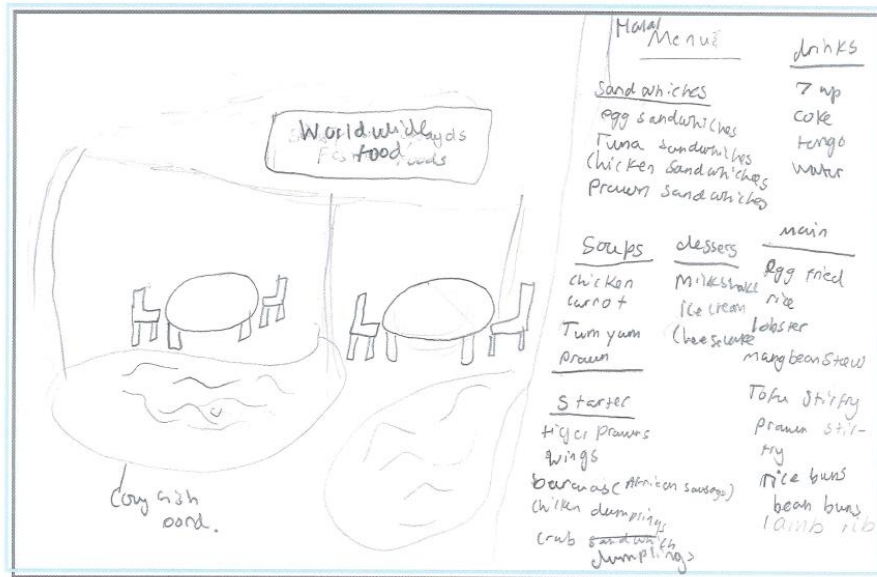 Worldwide
food
Coy fish
pond.
Halal
Menue
drinks
7 up
coke
tango
water
Sandwhiches
egg sandwhiches
Tuna sandwhiches
Chicken Sandwhiches
Prawn Sandwhiches
Soups
chicken
carrot
Tum yum
prawn
dessers
Milkshake
ice cream
Cheesecake
main
egg fried
rice
lobster
mang bean stew
Tofu stir fry
prawn stir-
fry
rice buns
bean buns
lamb rib
Starter
tiger prawns
wings
(African sausage)
chicken dumplings
crab sandwhich
dumplings